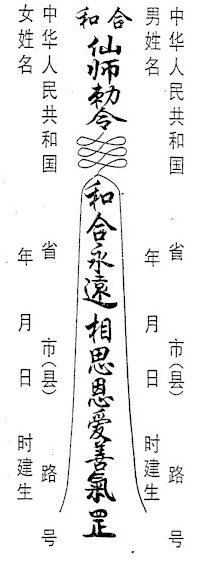 中华人民共和国 省 市(县) 路 号
男姓名 年 月 日 时建生
和合
仙师勅令
和合永遠相思恩愛善氣罡
中华人民共和国 省 市(县) 路 号
女姓名 年 月 日 时建生